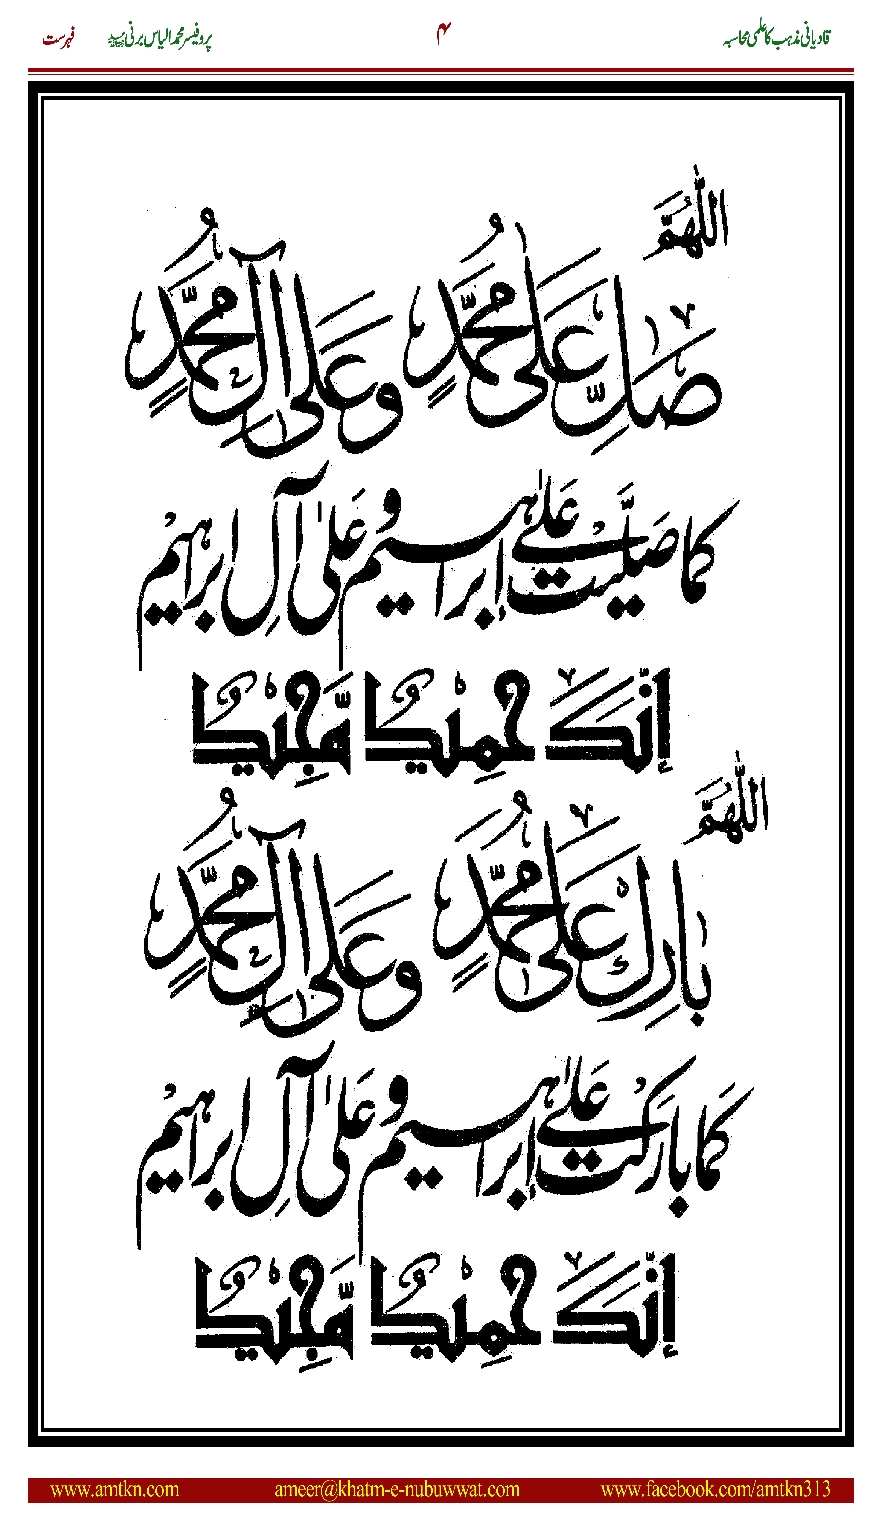 قادیانی مذہب کا علمی محاسبہ ۴ پروفیسر محمد الیاس برنی فہرست
اللّٰهُمَّ
صَلِّ عَلٰی مُحَمَّدٍ وَعَلٰی آلِ مُحَمَّدٍ
کما صلیت علیٰ إبراهیم وعلیٰ آلِ ابراہیم
إنّک حمیدٌ مَّجیدٌ
اللّٰهُمَّ
بارِک عَلٰی مُحَمَّدٍ وَعَلٰی آلِ مُحَمَّدٍ
کما بارکت علیٰ إبراهیم وعلیٰ آلِ ابراہیم
إنّک حمیدٌ مَّجیدٌ
www.amtkn.com ameer@khatm-e-nubuwwat.com www.facebook.com/amtkn313